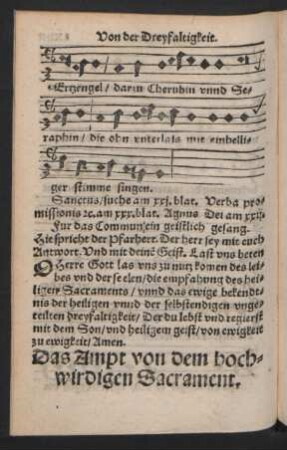 Von der Dreyfaltigkeit.
Ertzengel / darin Cherubin vnnd Se-
raphin / die ohn vnterlaß mit einhelli-
ger stimme singen.
Sanctus / suche am xxj. blat. Verba pro-
missionis ꝛc. am xxx. blat. Agnus Dei am xxij.
Fur das Communicin geistlich gesang.
Hie spricht der Pfarherr. Der herr sey mit euch
Antwort. Vnd mit deinẽ Geist. Last vns beten
O Herre Gott las vns zu nutz komen des lei-
bes vnd der seelen / die empfahung des hei-
ligen Sacraments / vnnd das ewige bekendt-
nis der heiligen vnnd der selbstendigen vnge-
teilten dreyfaltigkeit / Der du lebst vnd regierst
mit dem Son / vnd heiligem geist / von ewigkeit
zu ewigkeit / Amen.
Das Ampt von dem hoch-
wirdigen Sacrament.